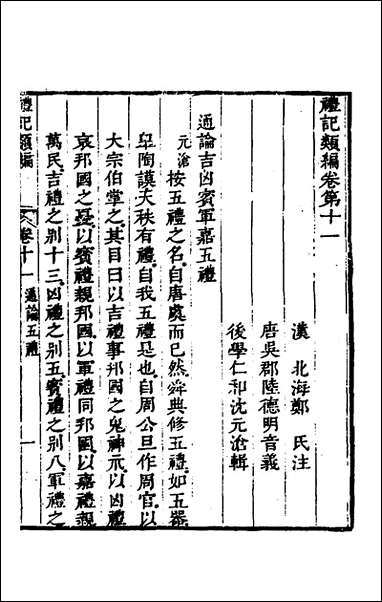 禮記類編卷第十一
漢　北海鄭　氏注
唐吳郡陸德明音義
後學仁和沈元滄輯
通論吉凶賓軍嘉五禮
元滄按五禮之名自唐虞而已然舜典修五禮如五器
臯陶謨天秩有禮自我五禮是也自周公旦作周官以
大宗伯掌之其目曰以吉禮事邦國之鬼神示以凶禮
哀邦國之憂以賓禮親邦國以軍禮同邦國以嘉禮親
萬民吉禮之别十三凶禮之别五賓禮之别八軍禮之
禮記類編　卷十一　通論五禮　一